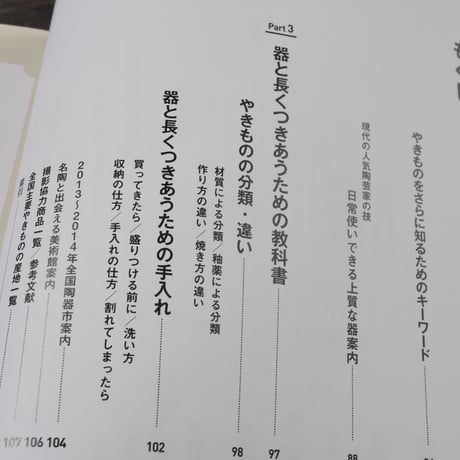 やきものをさらに知るためのキーワード
現代の人気陶芸家の技
日常使いできる上質な器案内
88
Part 3
器と長くつきあうための教科書
97
やきものの分類・違い
98
材質による分類/釉薬による分類
作り方の違い/焼き方の違い
器と長くつきあうための手入れ
102
買ってきたら/盛りつける前に/洗い方
収納の仕方/手入れの仕方/割れてしまったら
2013〜2014年全国陶器市案内
名陶と出会える美術館案内
104
撮影協力商品一覧/参考文献
106
全国主要やきものの産地一覧
107
索引